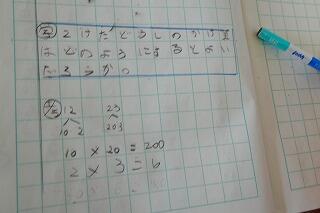 2けたどうしのかけ算
はどのようにするとよい
だろうか。
12 23
10 2 203
10 × 20 = 200
2 × 3 = 6